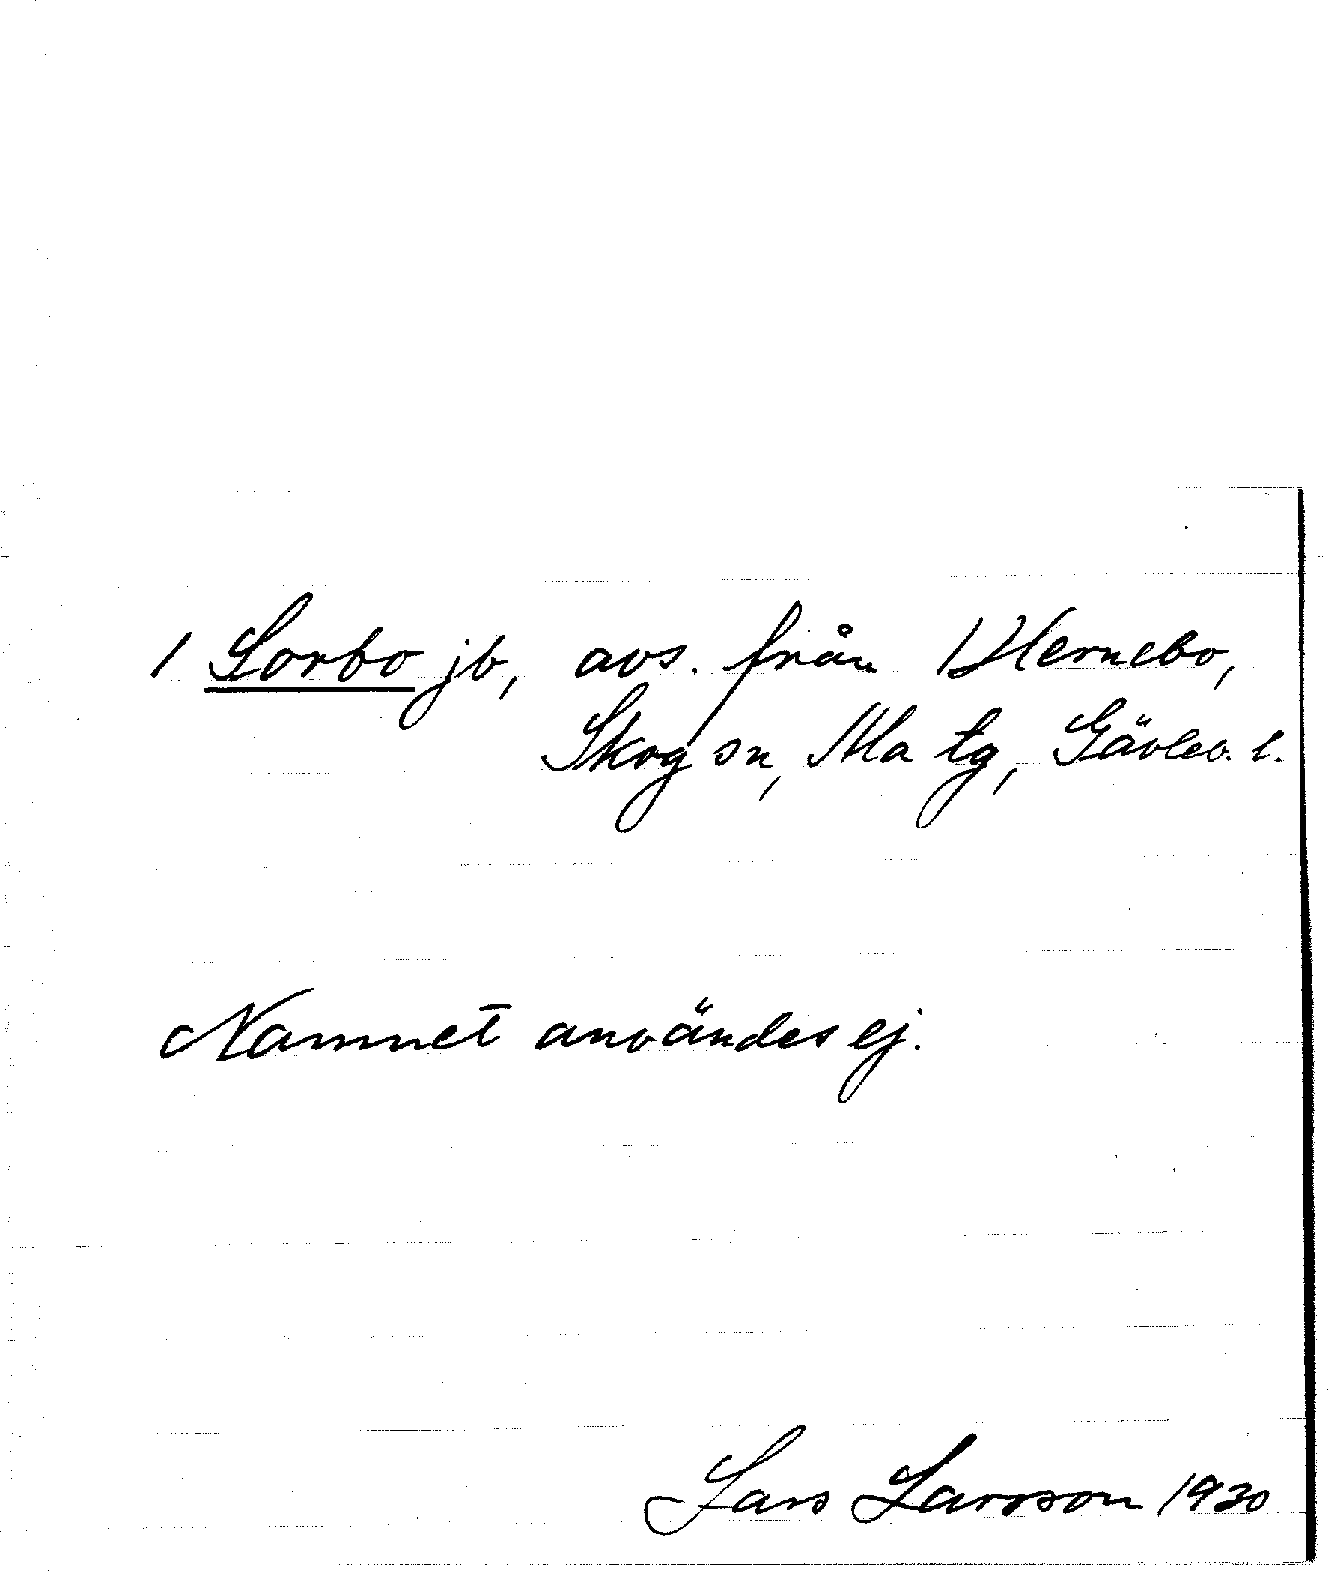 1 Sorbo jb, avs. från 1 Hernebo,
Skog sn, Ala tg, Gävleb. l.
Namnet användes ej.
Lars Larsson 1930